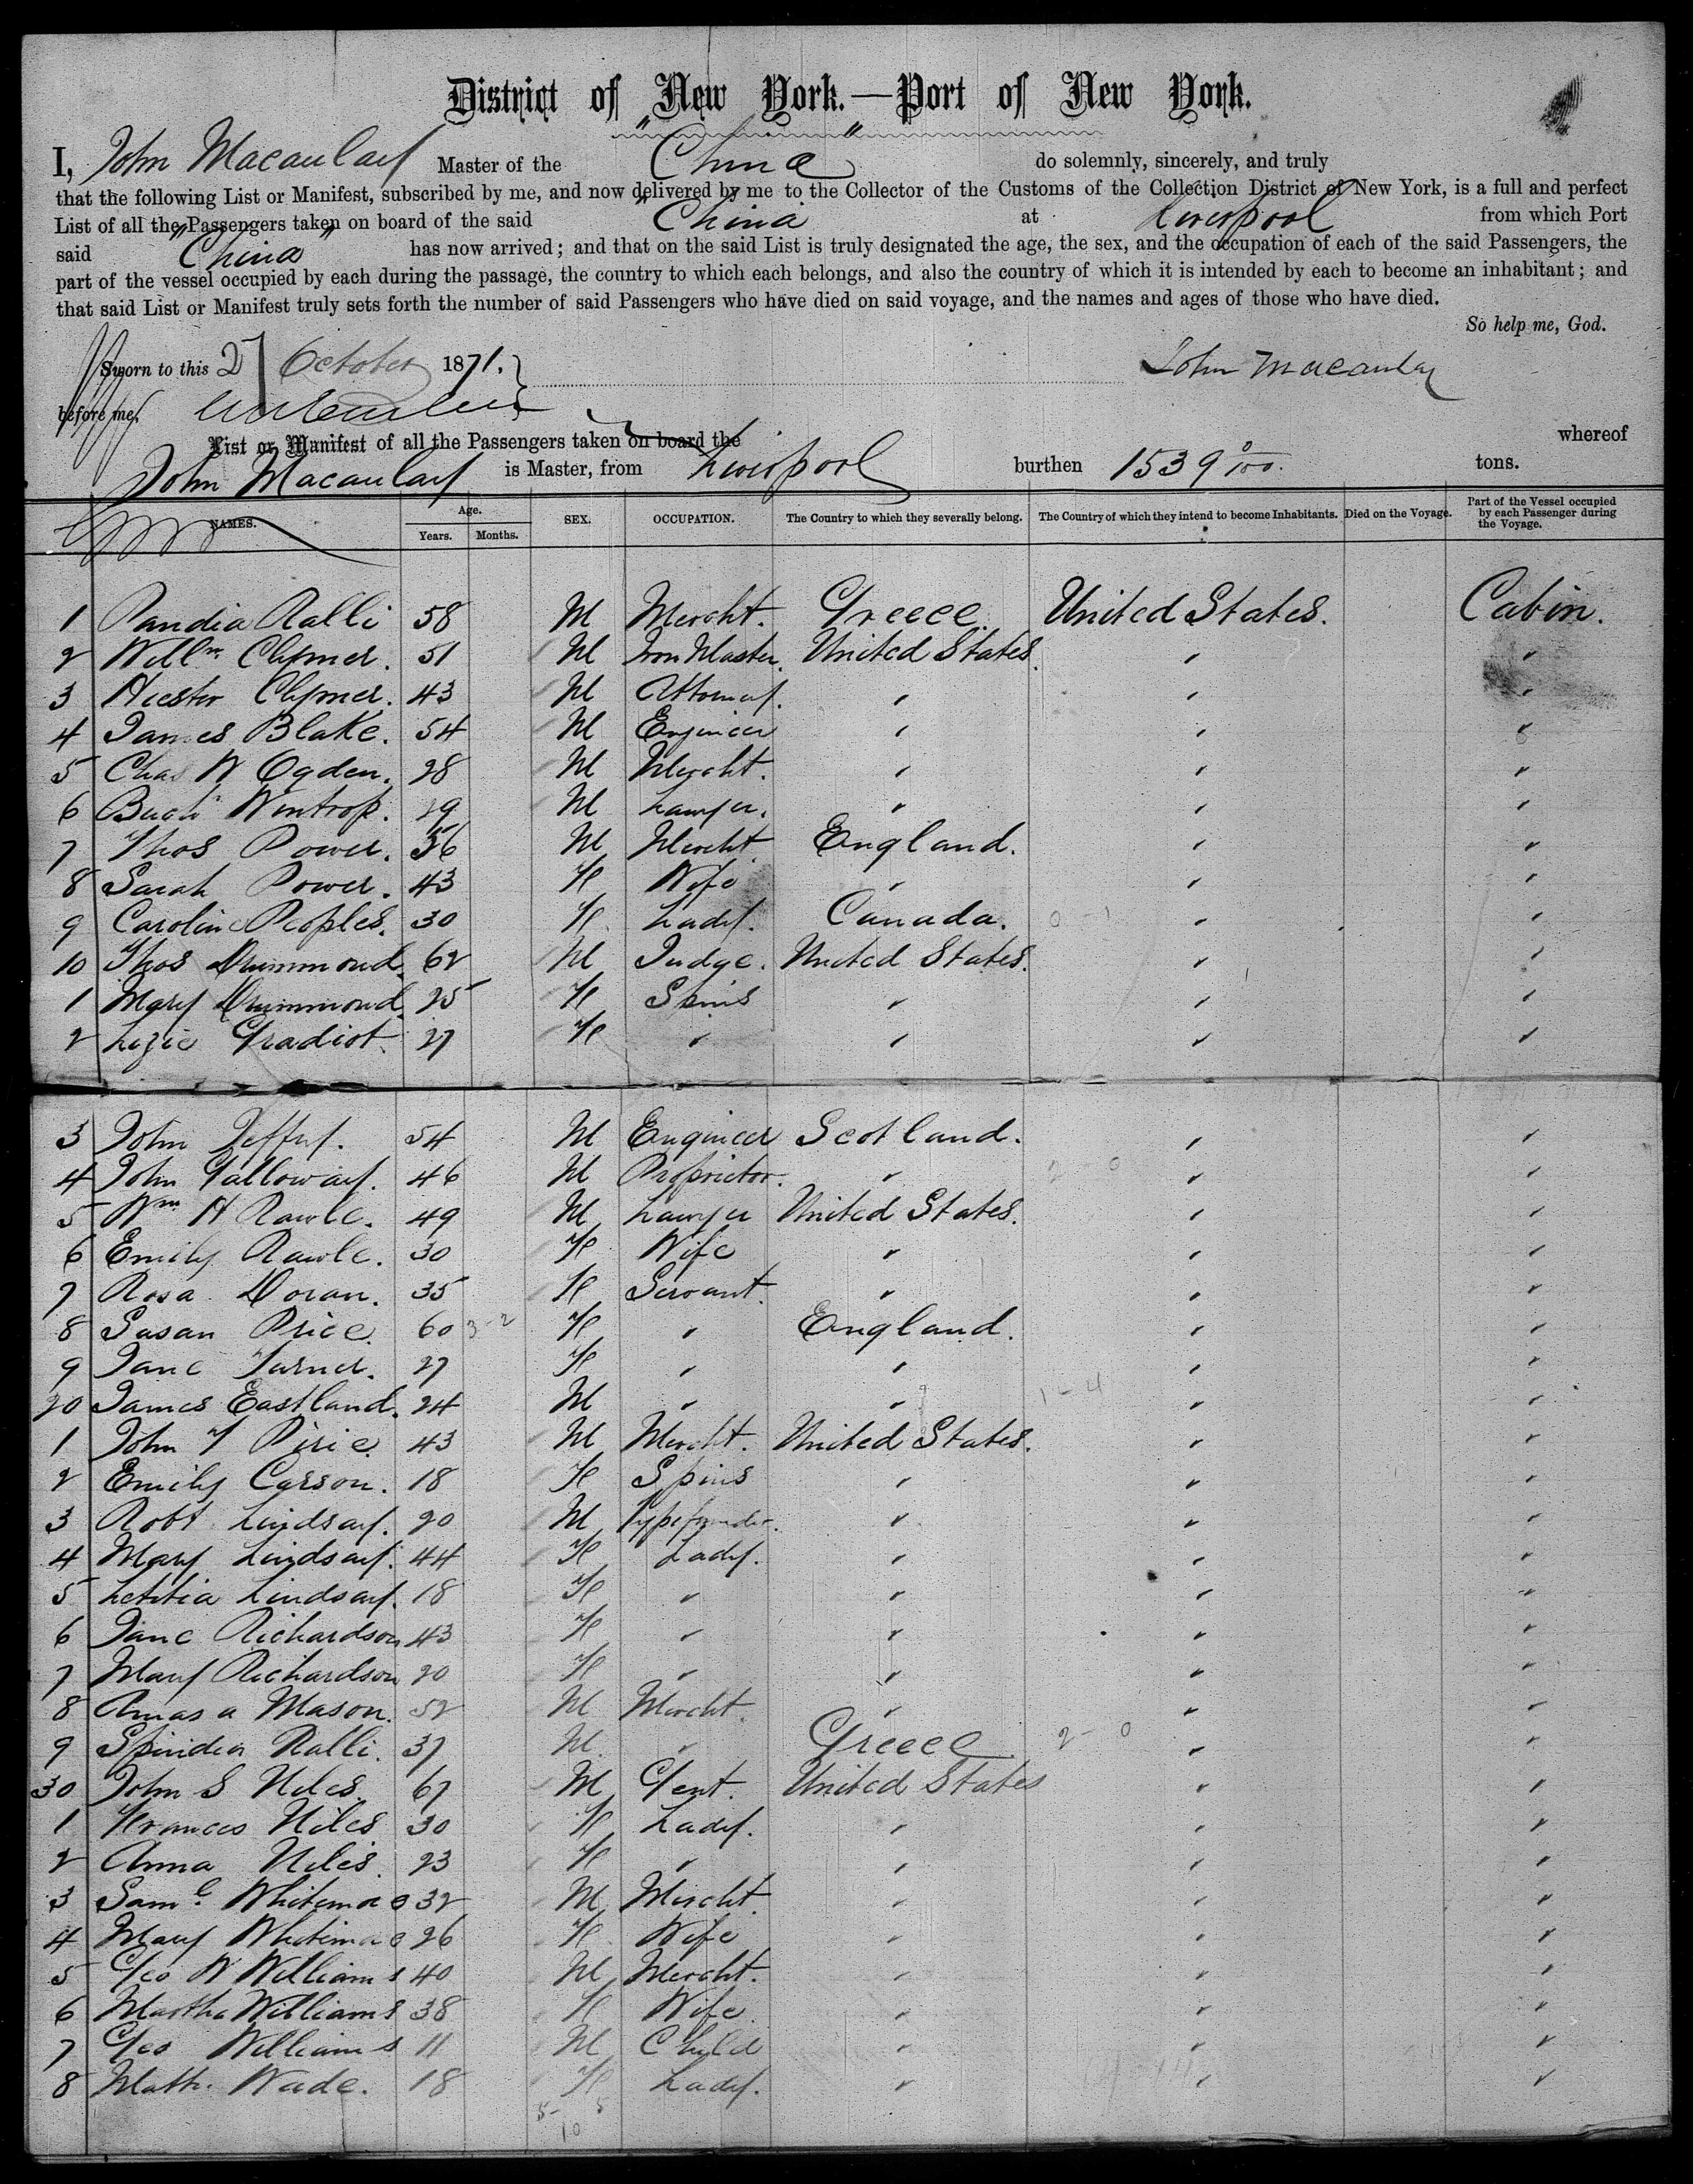 District of New York.—Port of New York.
I, John Macaulay Master of the "China" do solemnly, sincerely, and truly
that the following List or Manifest, subscribed by me, and now delivered by me to the Collector of the Customs of the Collection District of New York, is a full and perfect
List of all the Passengers taken on board of the said "China" at Liverpool from which Port
said "China" has now arrived; and that on the said List is truly designated the age, the sex, and the occupation of each of the said Passengers, the
part of the vessel occupied by each during the passage, the country to which each belongs, and also the country of which it is intended by each to become an inhabitant; and
that said List or Manifest truly sets forth the number of said Passengers who have died on said voyage, and the names and ages of those who have died.
So help me, God.
Sworn to this 27 October 1871. John Macaulay
before me,
List or Manifest of all the Passengers taken on board the whereof
John Macaulay is Master, from Liverpool burthen 1539 0/100. tons.
NAMES. Age. Years. Months. SEX. OCCUPATION. The Country to which they severally belong. The Country of which they intend to become Inhabitants. Died on the Voyage. Part of the Vessel occupied by each Passenger during the Voyage.
1 Pandia Ralli 58 M Mercht. Greece. United States. Cabin.
2 Willm Clymer. 51 M Iron Master. United States. " "
3 Hiester Clymer. 43 M Attorney. " " "
4 James Blake. 54 M Engineer " " "
5 Chas W Ogden. 28 M Mercht. " " "
6 Wintrop. 29 M Lawyer. " " "
7 Thos Power. 56 M Mercht. England. " "
8 Sarah Power. 43 F Wife " " "
9 Caroline Peoples. 30 F. Lady. Canada. " "
10 Thos Drummond. 62 M Judge. United States. " "
1 Mary Drummond. 25 F Spins " " "
2 Lizie Gradiot. 27 F " " " "
3 John Jeffry. 54 M Engineer Scotland. " "
4 John Galloway. 46 M Proprietor. " " "
5 Wm H Rawle. 49 M Lawyer United States. " "
6 Emily Rawle. 30 F Wife " " "
7 Rosa Doran. 35 F Servant. " " "
8 Susan Price. 60 F " England. " "
9 Jane Turner. 27 F " " " "
20 James Eastland. 24 M " " " "
1 John T Pirie. 43 M Mercht. United States. " "
2 Emily Carson. 18 F Spins " " "
3 Robt Lindsay. 20 M Typefounder. " " "
4 Mary Lindsay. 44 F Lady. " " "
5 Letitia Lindsay. 18 F " " " "
6 Jane Richardson 43 F " " " "
7 Mary Richardson 20 F " " " "
8 Amasa Mason. 52 M Mercht. " " "
9 Ralli. 37 M. " Greece " "
30 John S Niles. 67 M Gent. United States " "
1 Frances Niles 30 F Lady. " " "
2 Anna Niles. 23 F " " " "
3 Saml. 32 M Mercht. " " "
4 Mary 26 F Wife " " "
5 Geo W Williams 40 M Mercht. " " "
6 Martha Williams 38 F Wife. " " "
7 Geo Williams 11 M Child " " "
8 Matt. Wade. 18 F Lady. " " "